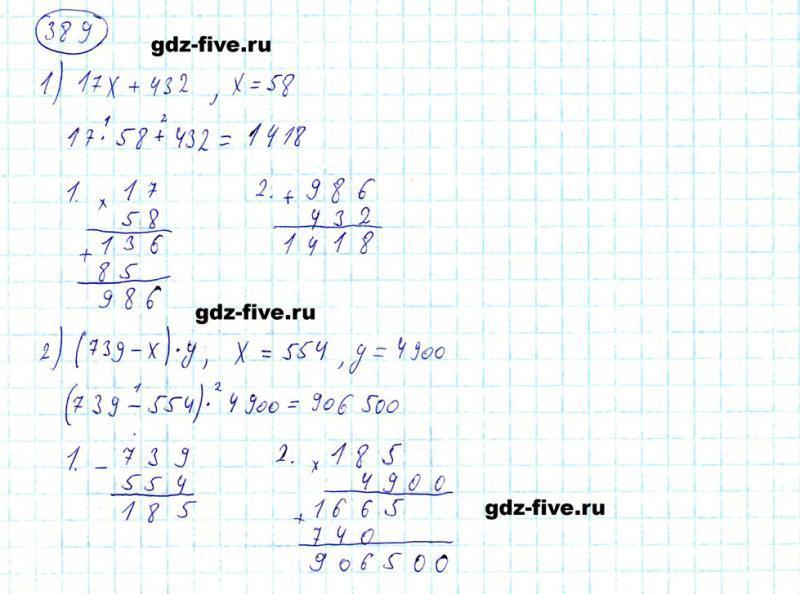 389
gdz-five.ru
1) 17x + 432 , x = 58
17 · 58 + 432 = 1418
1 2
1. × 17
58
+ 136
85
986
2. + 986
432
1418
gdz-five.ru
2) (739 − x) · y ; x = 554 , y = 4900
(739 − 554) · 4900 = 906 500
1 2
1. − 739
554
185
2. × 185
4900
+ 1665
740
906500
gdz-five.ru